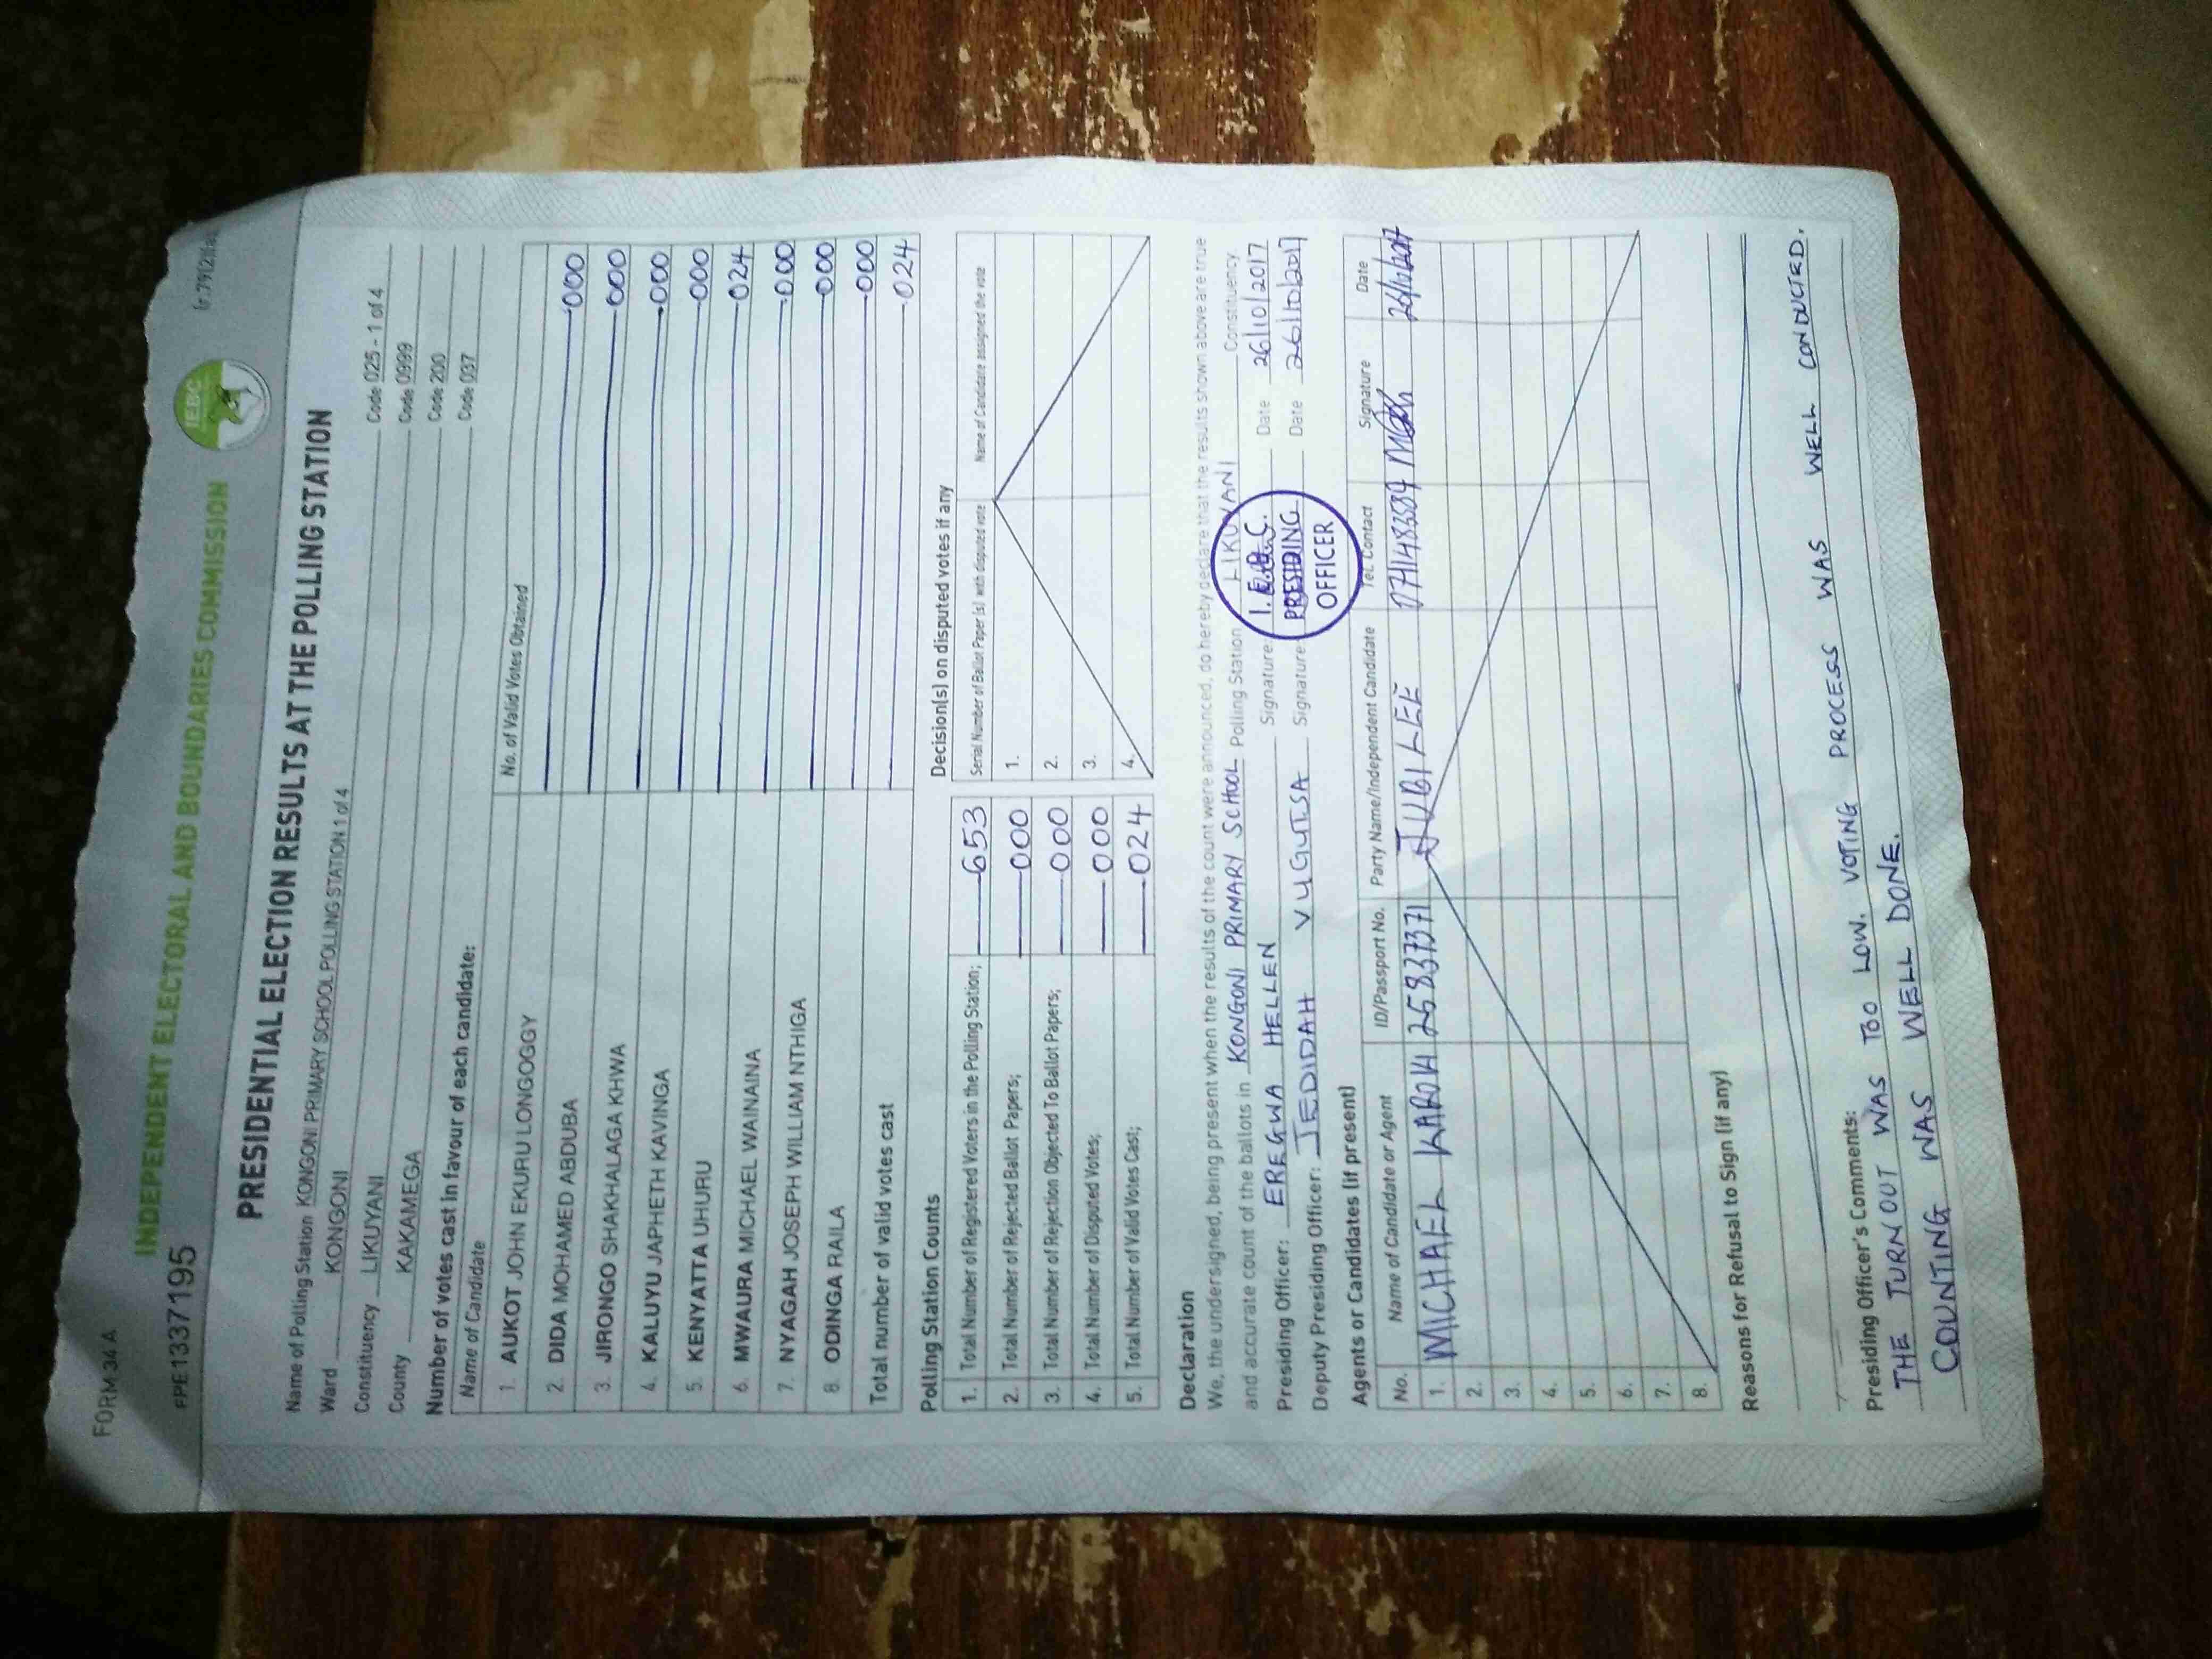 FORM 34 A
(r.79(2)(a
FPE1337195
INDEPENDENT ELECTORAL AND BOUNDARIES COMMISSION
IEBC
PRESIDENTIAL ELECTION RESULTS AT THE POLLING STATION
Name of Polling Station KONGONI PRIMARY SCHOOL POLLING STATION 1 of 4 Code 025 - 1 of 4
Ward KONGONI Code 0999
Constituency LIKUYANI Code 200
County KAKAMEGA Code 037
Number of votes cast in favour of each candidate:
Name of Candidate No. of Valid Votes Obtained
1. AUKOT JOHN EKURU LONGOGGY 000
2. DIDA MOHAMED ABDUBA 000
3. JIRONGO SHAKHALAGA KHWA 000
4. KALUYU JAPHETH KAVINGA 000
5. KENYATTA UHURU 024
6. MWAURA MICHAEL WAINAINA 000
7. NYAGAH JOSEPH WILLIAM NTHIGA 000
8. ODINGA RAILA 000
Total number of valid votes cast 024
Polling Station Counts
1. Total Number of Registered Voters in the Polling Station; 653
2. Total Number of Rejected Ballot Papers; 000
3. Total Number of Rejection Objected To Ballot Papers; 000
4. Total Number of Disputed Votes; 000
5. Total Number of Valid Votes Cast; 024
Decision(s) on disputed votes if any
Serial Number of Ballot Paper (s) with disputed vote Name of Candidate assigned the vote
1.
2.
3.
4.
Declaration
We, the undersigned, being present when the results of the count were announced, do hereby declare that the results shown above are true
and accurate count of the ballots in KONGONI PRIMARY SCHOOL Polling Station LIKUYANI Constituency
Presiding Officer: EREGWA HELLEN Signature: Date 26/10/2017
Deputy Presiding Officer: JEDIDAH VUGUTSA Signature: Date 26/10/2017
I.E.B.C.
PRESIDING
OFFICER
Agents or Candidates (if present)
No. Name of Candidate or Agent ID/Passport No. Party Name/Independent Candidate Tel. Contact Signature Date
1. MICHAEL KAROKI 25837371 JUBILEE 26/10/2017
2.
3.
4.
5.
6.
7.
8.
Reasons for Refusal to Sign (if any)
Presiding Officer's Comments:
THE TURN OUT WAS TOO LOW. VOTING PROCESS WAS WELL CONDUCTED.
COUNTING WAS WELL DONE.